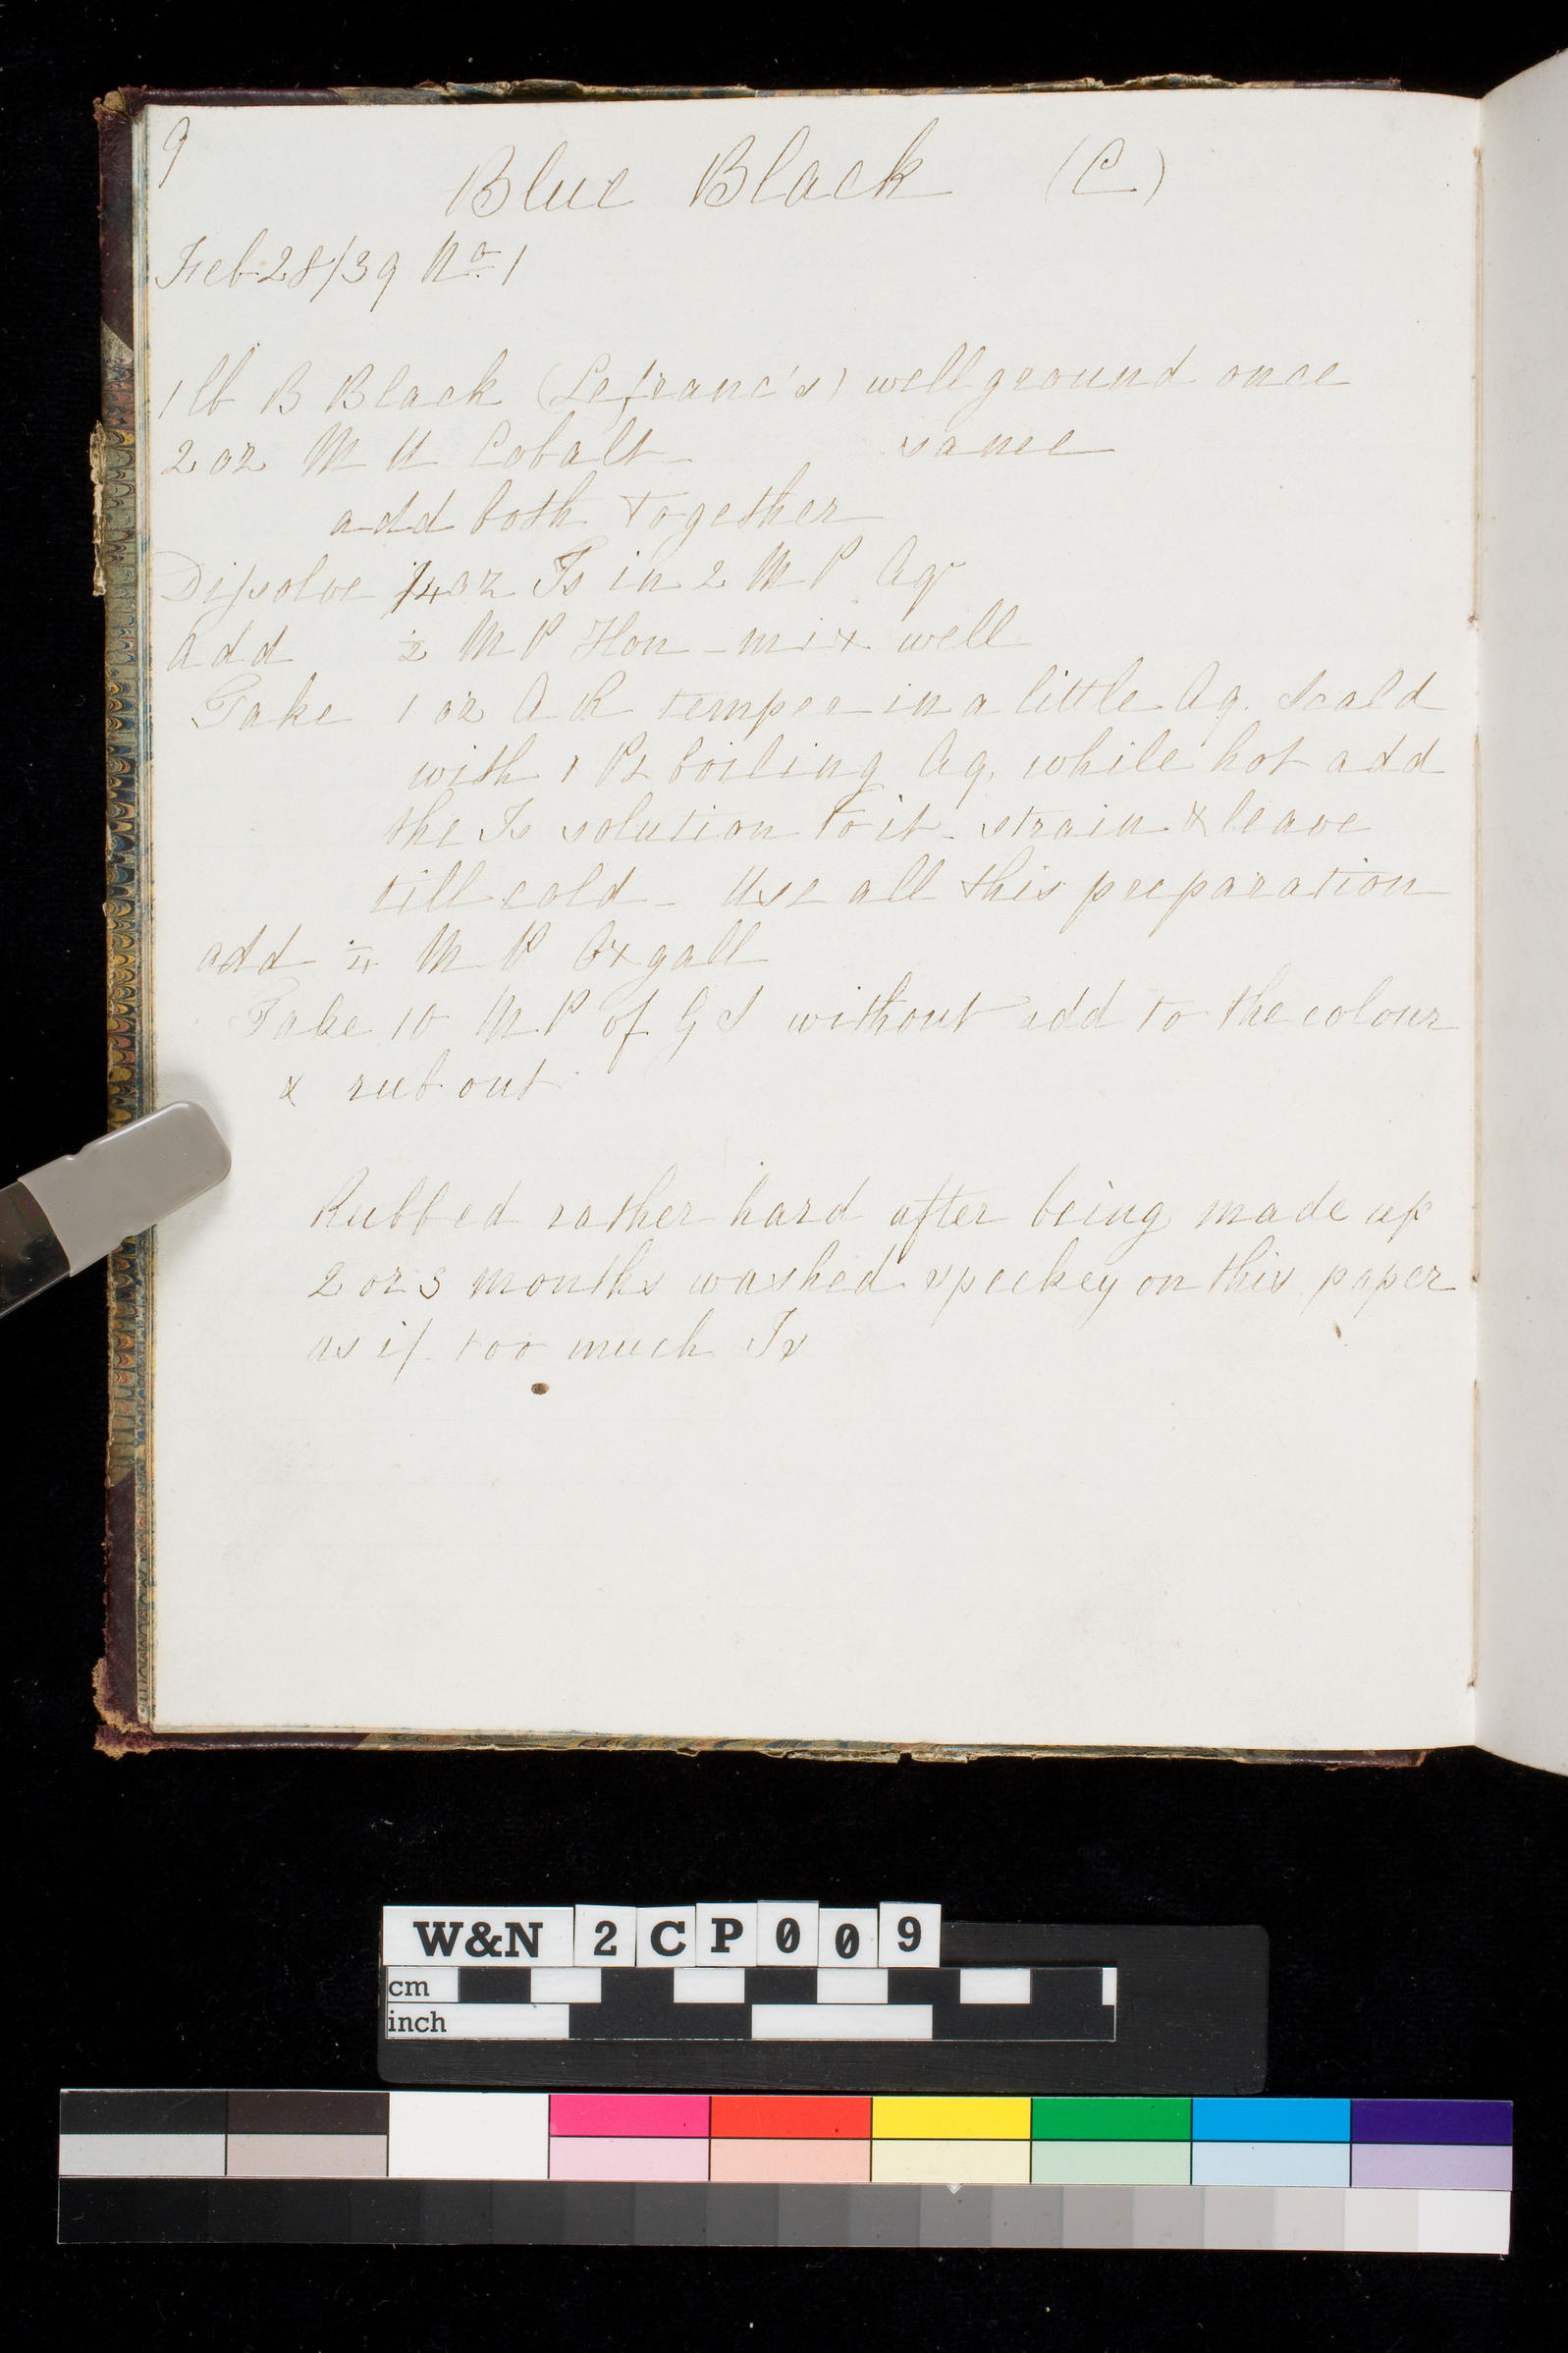 9
Blue Black (C)
Feb 28/39 No. 1
1 lb B Black (Lefranc's) well ground once
2 oz M U Cobalt - same
add both together
Dissolve 1/4 oz Is in 2 M P Aq
Add 1/2 M P Hon - mix well
Take 1 oz A R temper in a little Aq. Scald
with 1 Pt boiling Aq. while hot add
the Is solution to it - strain & leave
till cold - Use all this preparation
add 1/4 M P Oxgall
Take 10 M P of G S without add to the colour
& rub out
Rubbed rather hard after being made up
2 or 3 months washed speckey on this paper
as if too much Is
W&N 2CP009
cm
inch